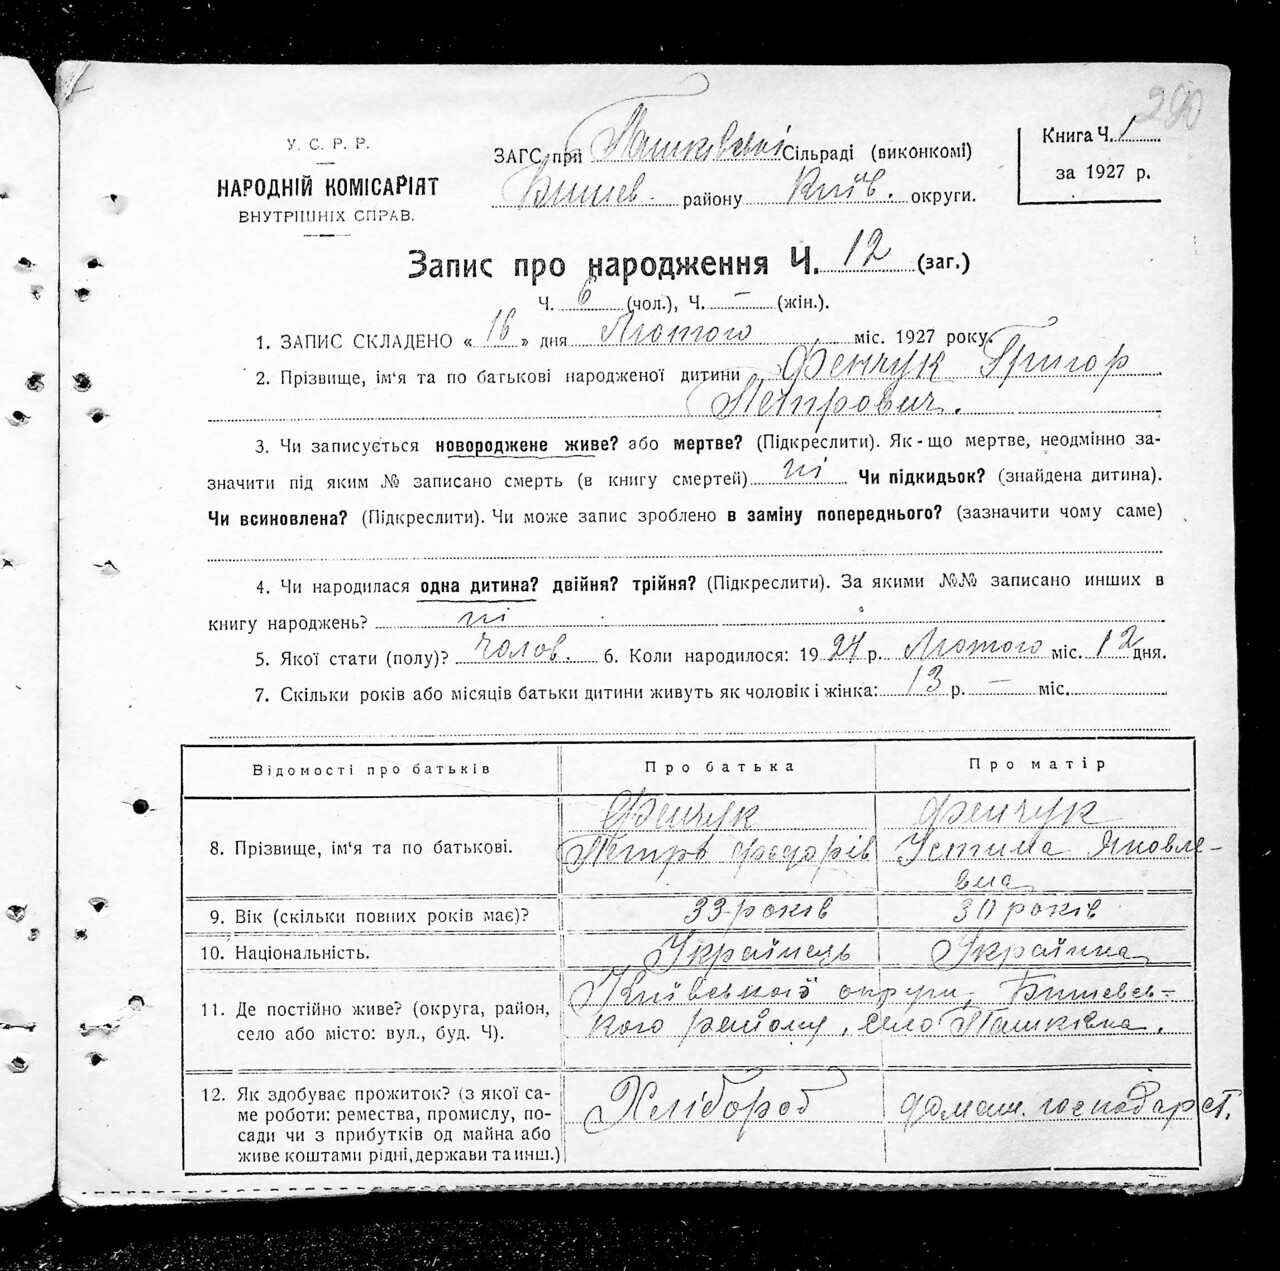 290
У. С. Р. Р.
НАРОДНІЙ КОМІСАРІЯТ
ВНУТРІШНІХ СПРАВ.
ЗАГС при Пашківські Сільраді (виконкомі)
Бишев. району Київ. округи.
Книга Ч. 1
за 1927 р.
Запис про народження Ч. 12 (заг.)
Ч. 6 (чол.), Ч. — (жін.).
1. ЗАПИС СКЛАДЕНО « 16 » дня Лютого міс. 1927 року.
2. Прізвище, ім'я та по батькові народженої дитини Фенчук Григор
Петрович.
3. Чи записується новороджене живе? або мертве? (Підкреслити). Як-що мертве, неодмінно за-
значити під яким № записано смерть (в книгу смертей) ні Чи підкидьок? (знайдена дитина).
Чи всиновлена? (Підкреслити). Чи може запис зроблено в заміну попереднього? (зазначити чому саме)
4. Чи народилася одна дитина? двійня? трійня? (Підкреслити). За якими №№ записано инших в
книгу народжень? ні
5. Якої стати (полу)? Чолов. 6. Коли народилося: 1927 р. Лютого міс. 12 дня.
7. Скільки років або місяців батьки дитини живуть як чоловік і жінка: 13 р. — міс.
Відомості про батьків Про батька Про матір
Фенчук Фенчук
8. Прізвище, ім'я та по батькові. Петро Федорів Устина Яковле-
вна
9. Вік (скільки повних років має)? 33 років 30 років
10. Національність. Українець Українка
11. Де постійно живе? (округа, район, Київської округи, Бишевсь-
село або місто: вул., буд. Ч). кого району, село Пашківка.
12. Як здобуває прожиток? (з якої са-
ме роботи: ремества, промислу, по- Хлібороб домаш. господарст.
сади чи з прибутків од майна або
живе коштами рідні, держави та инш.)